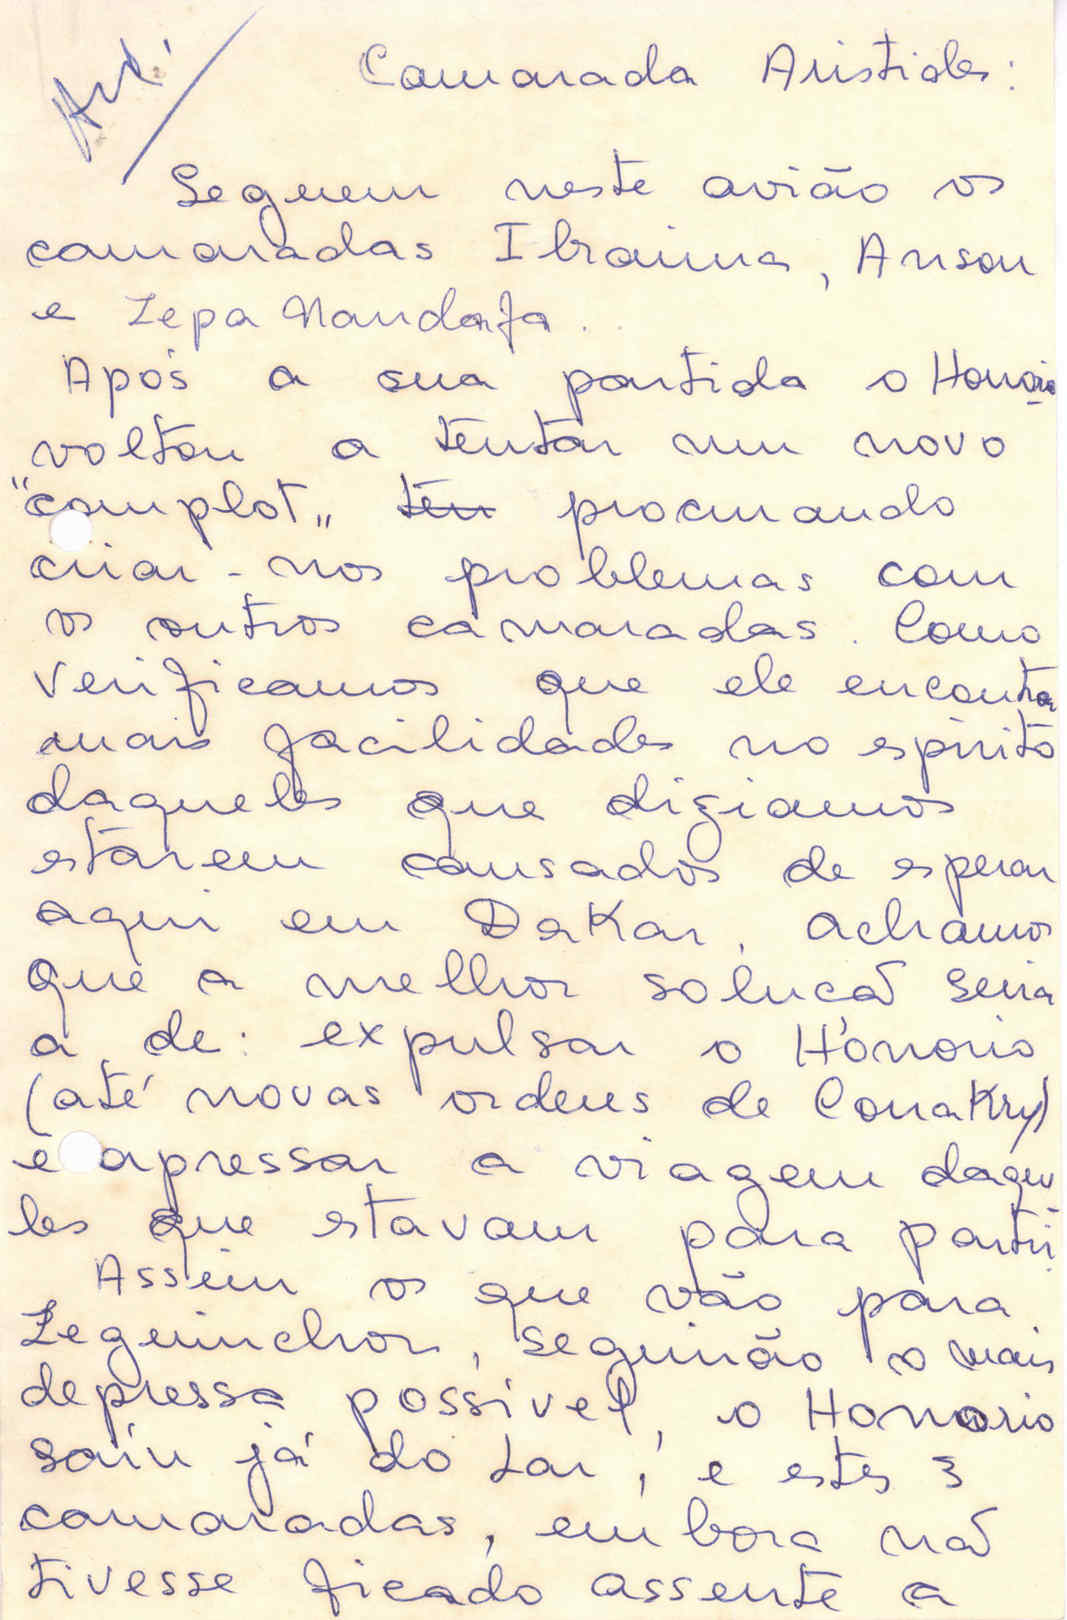 Arq.
Camarada Aristides:
Seguem neste avião os
camaradas Ibraima, Anson
e Zepa Nandafa.
Após a sua partida o Honorio
voltou a tentar um novo
"complot„ ten procurando
criar-nos problemas com
os outros camaradas. Como
verificamos que ele encontra
mais facilidades no espirito
daqueles que diziamos
estarem cansados de esperar
aqui em Dakar, achamos
que a melhor solucã seria
a de: expulsar o Honorio
(até novas ordens de Conakry)
e apressar a viagem daque
les que estavam para partir.
Assim os que vão para
Zeguinchor, seguirão o mais
depressa possivel, o Honorio
saíu já do Lar, e estes 3
camaradas, embora nã
tivesse ficado assente a